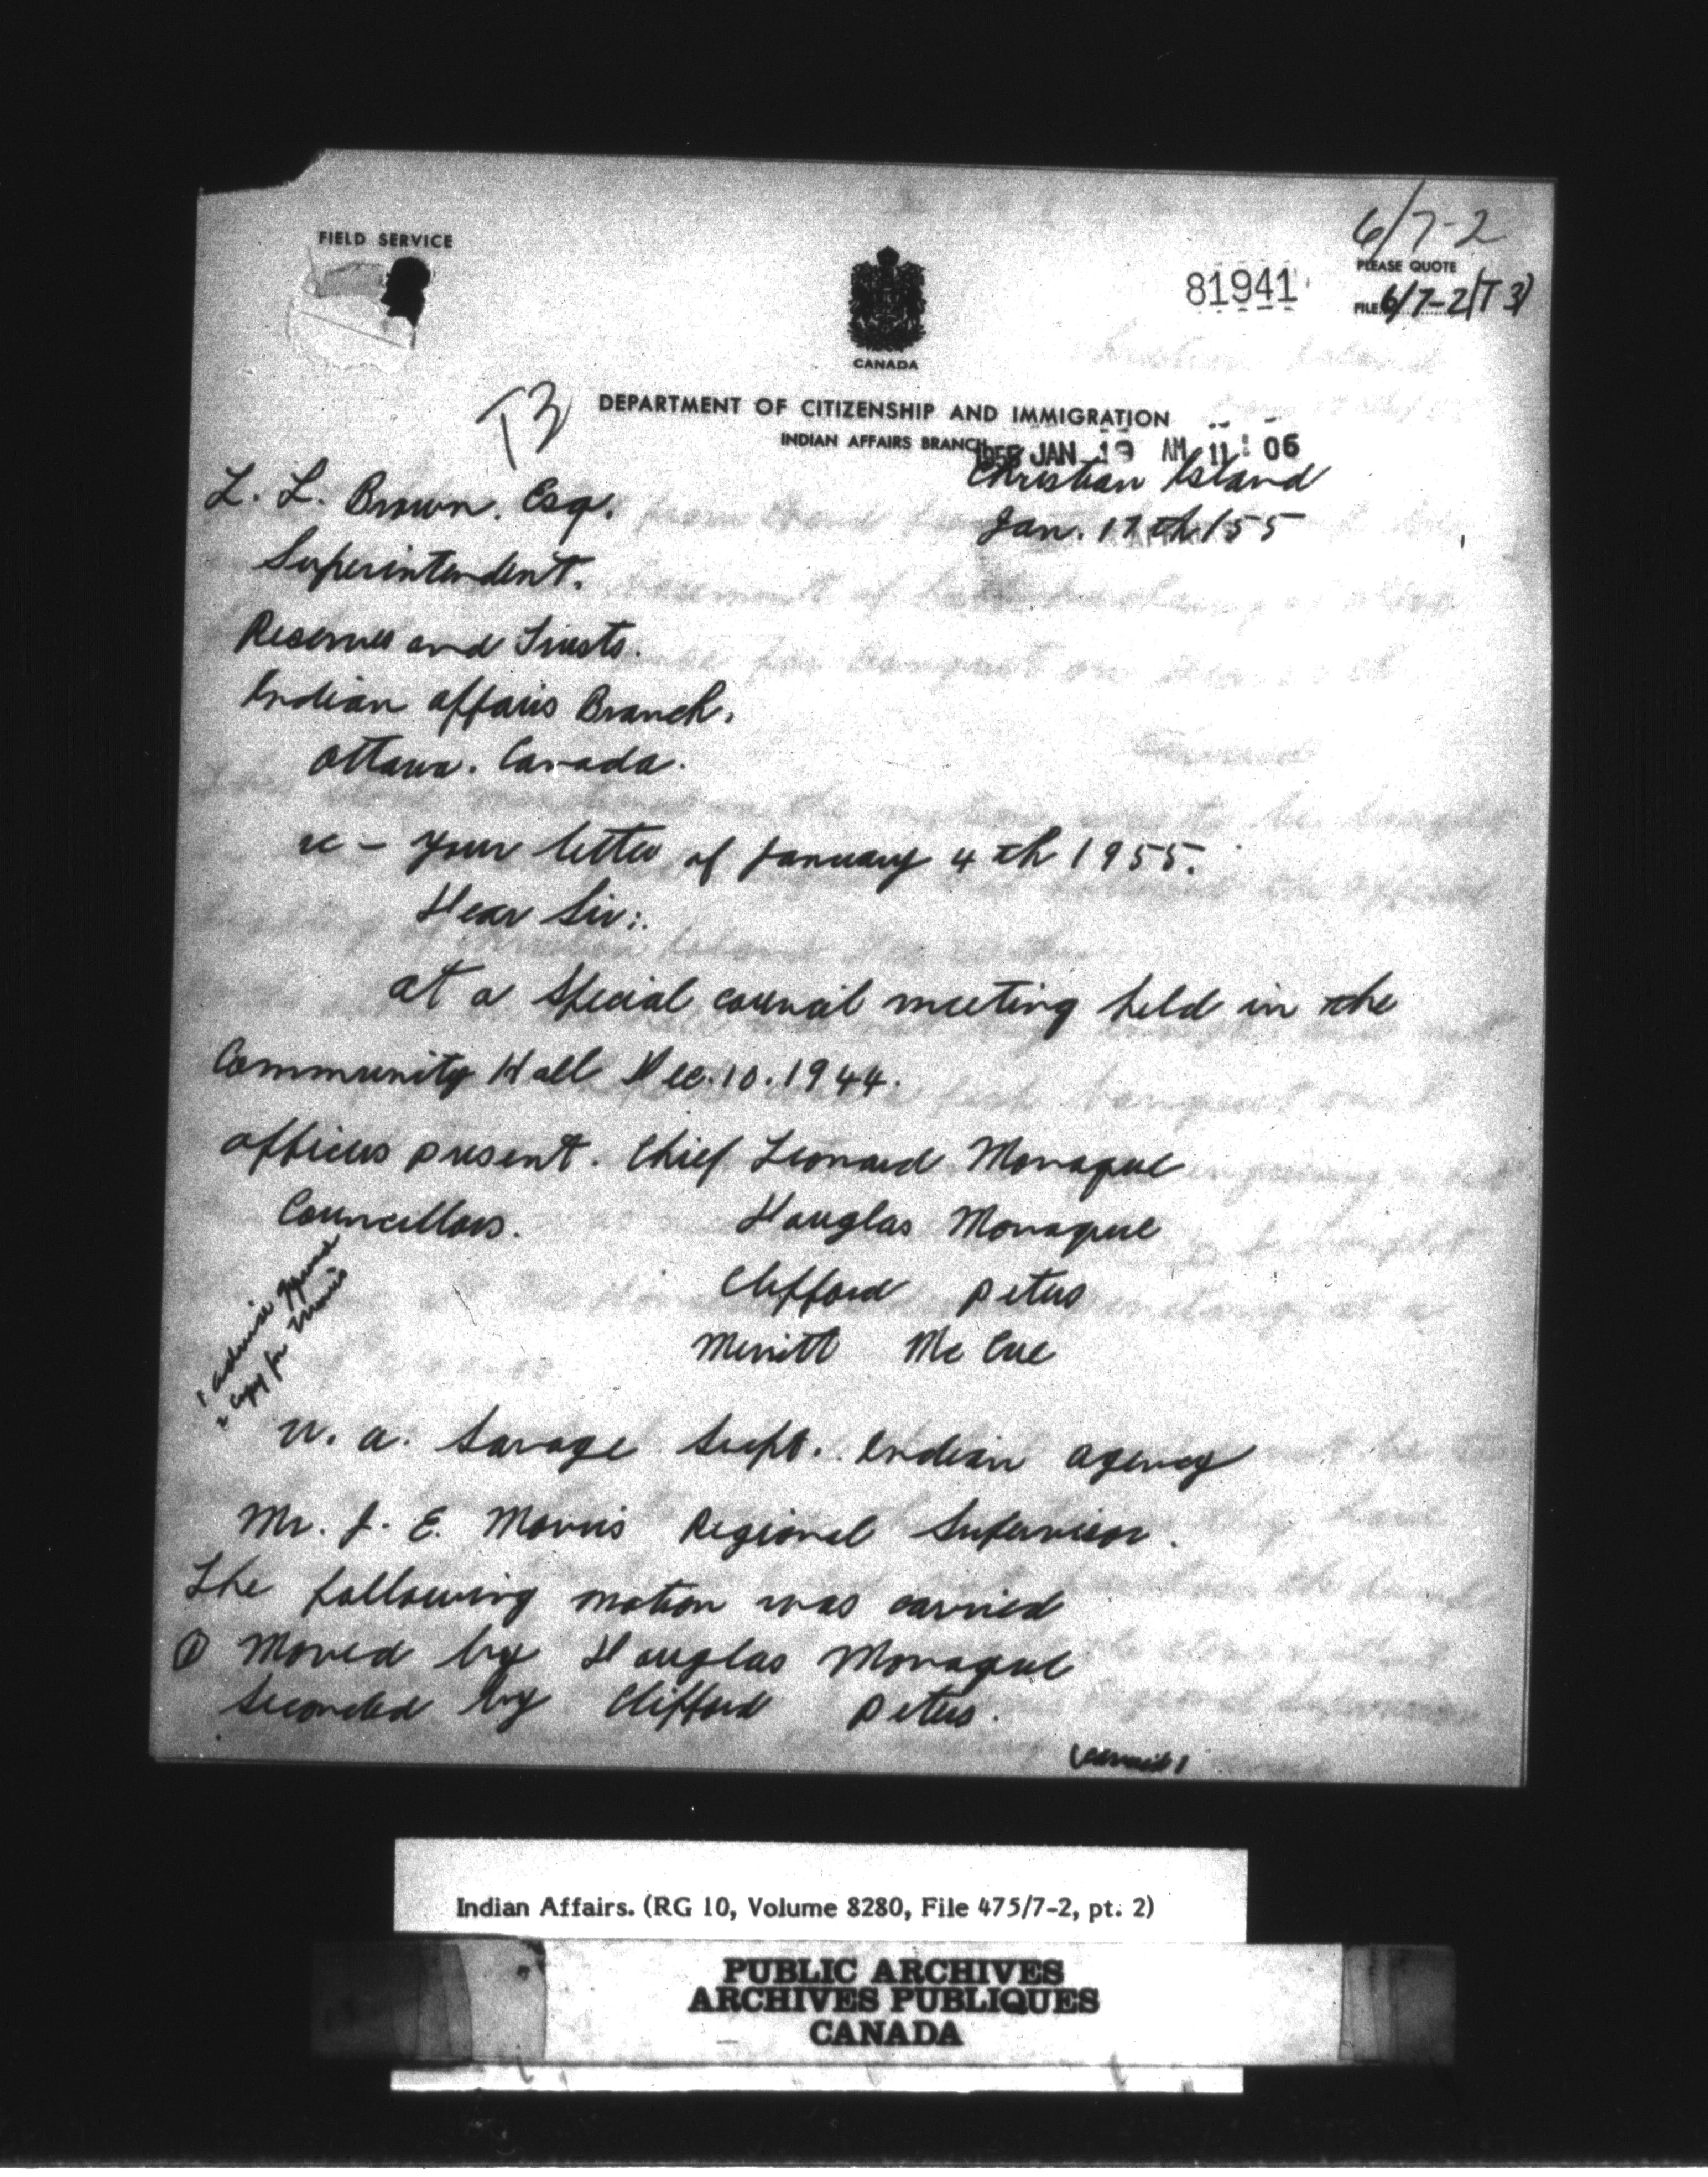 6/7-2
FIELD SERVICE
PLEASE QUOTE
81941
FILE 6/7-2(T3)
CANADA
T3
DEPARTMENT OF CITIZENSHIP AND IMMIGRATION
INDIAN AFFAIRS BRANCH
JAN 19 AM 11:06
Christian Island
L. L. Brown. Esq.
Jan. 17th/55
Superintendent.
Reserves and Trusts.
Indian Affairs Branch.
Ottawa. Canada.
re - your letter of January 4th 1955.
Dear Sir:.
At a Special council meeting held in the
Community Hall Dec. 10. 1944.
Officers present. Chief Leonard Monague
Councillors. Douglas Monague
Clifford Peters
Merritt McCue
1 Advise
2 Copy for Morris
W. A. Savage Supt. Indian Agency
Mr. J. E. Morris Regional Supervisor.
The following motion was carried
① Moved by Douglas Monague
Seconded by Clifford Peters.
Indian Affairs. (RG 10, Volume 8280, File 475/7-2, pt. 2)
PUBLIC ARCHIVES
ARCHIVES PUBLIQUES
CANADA